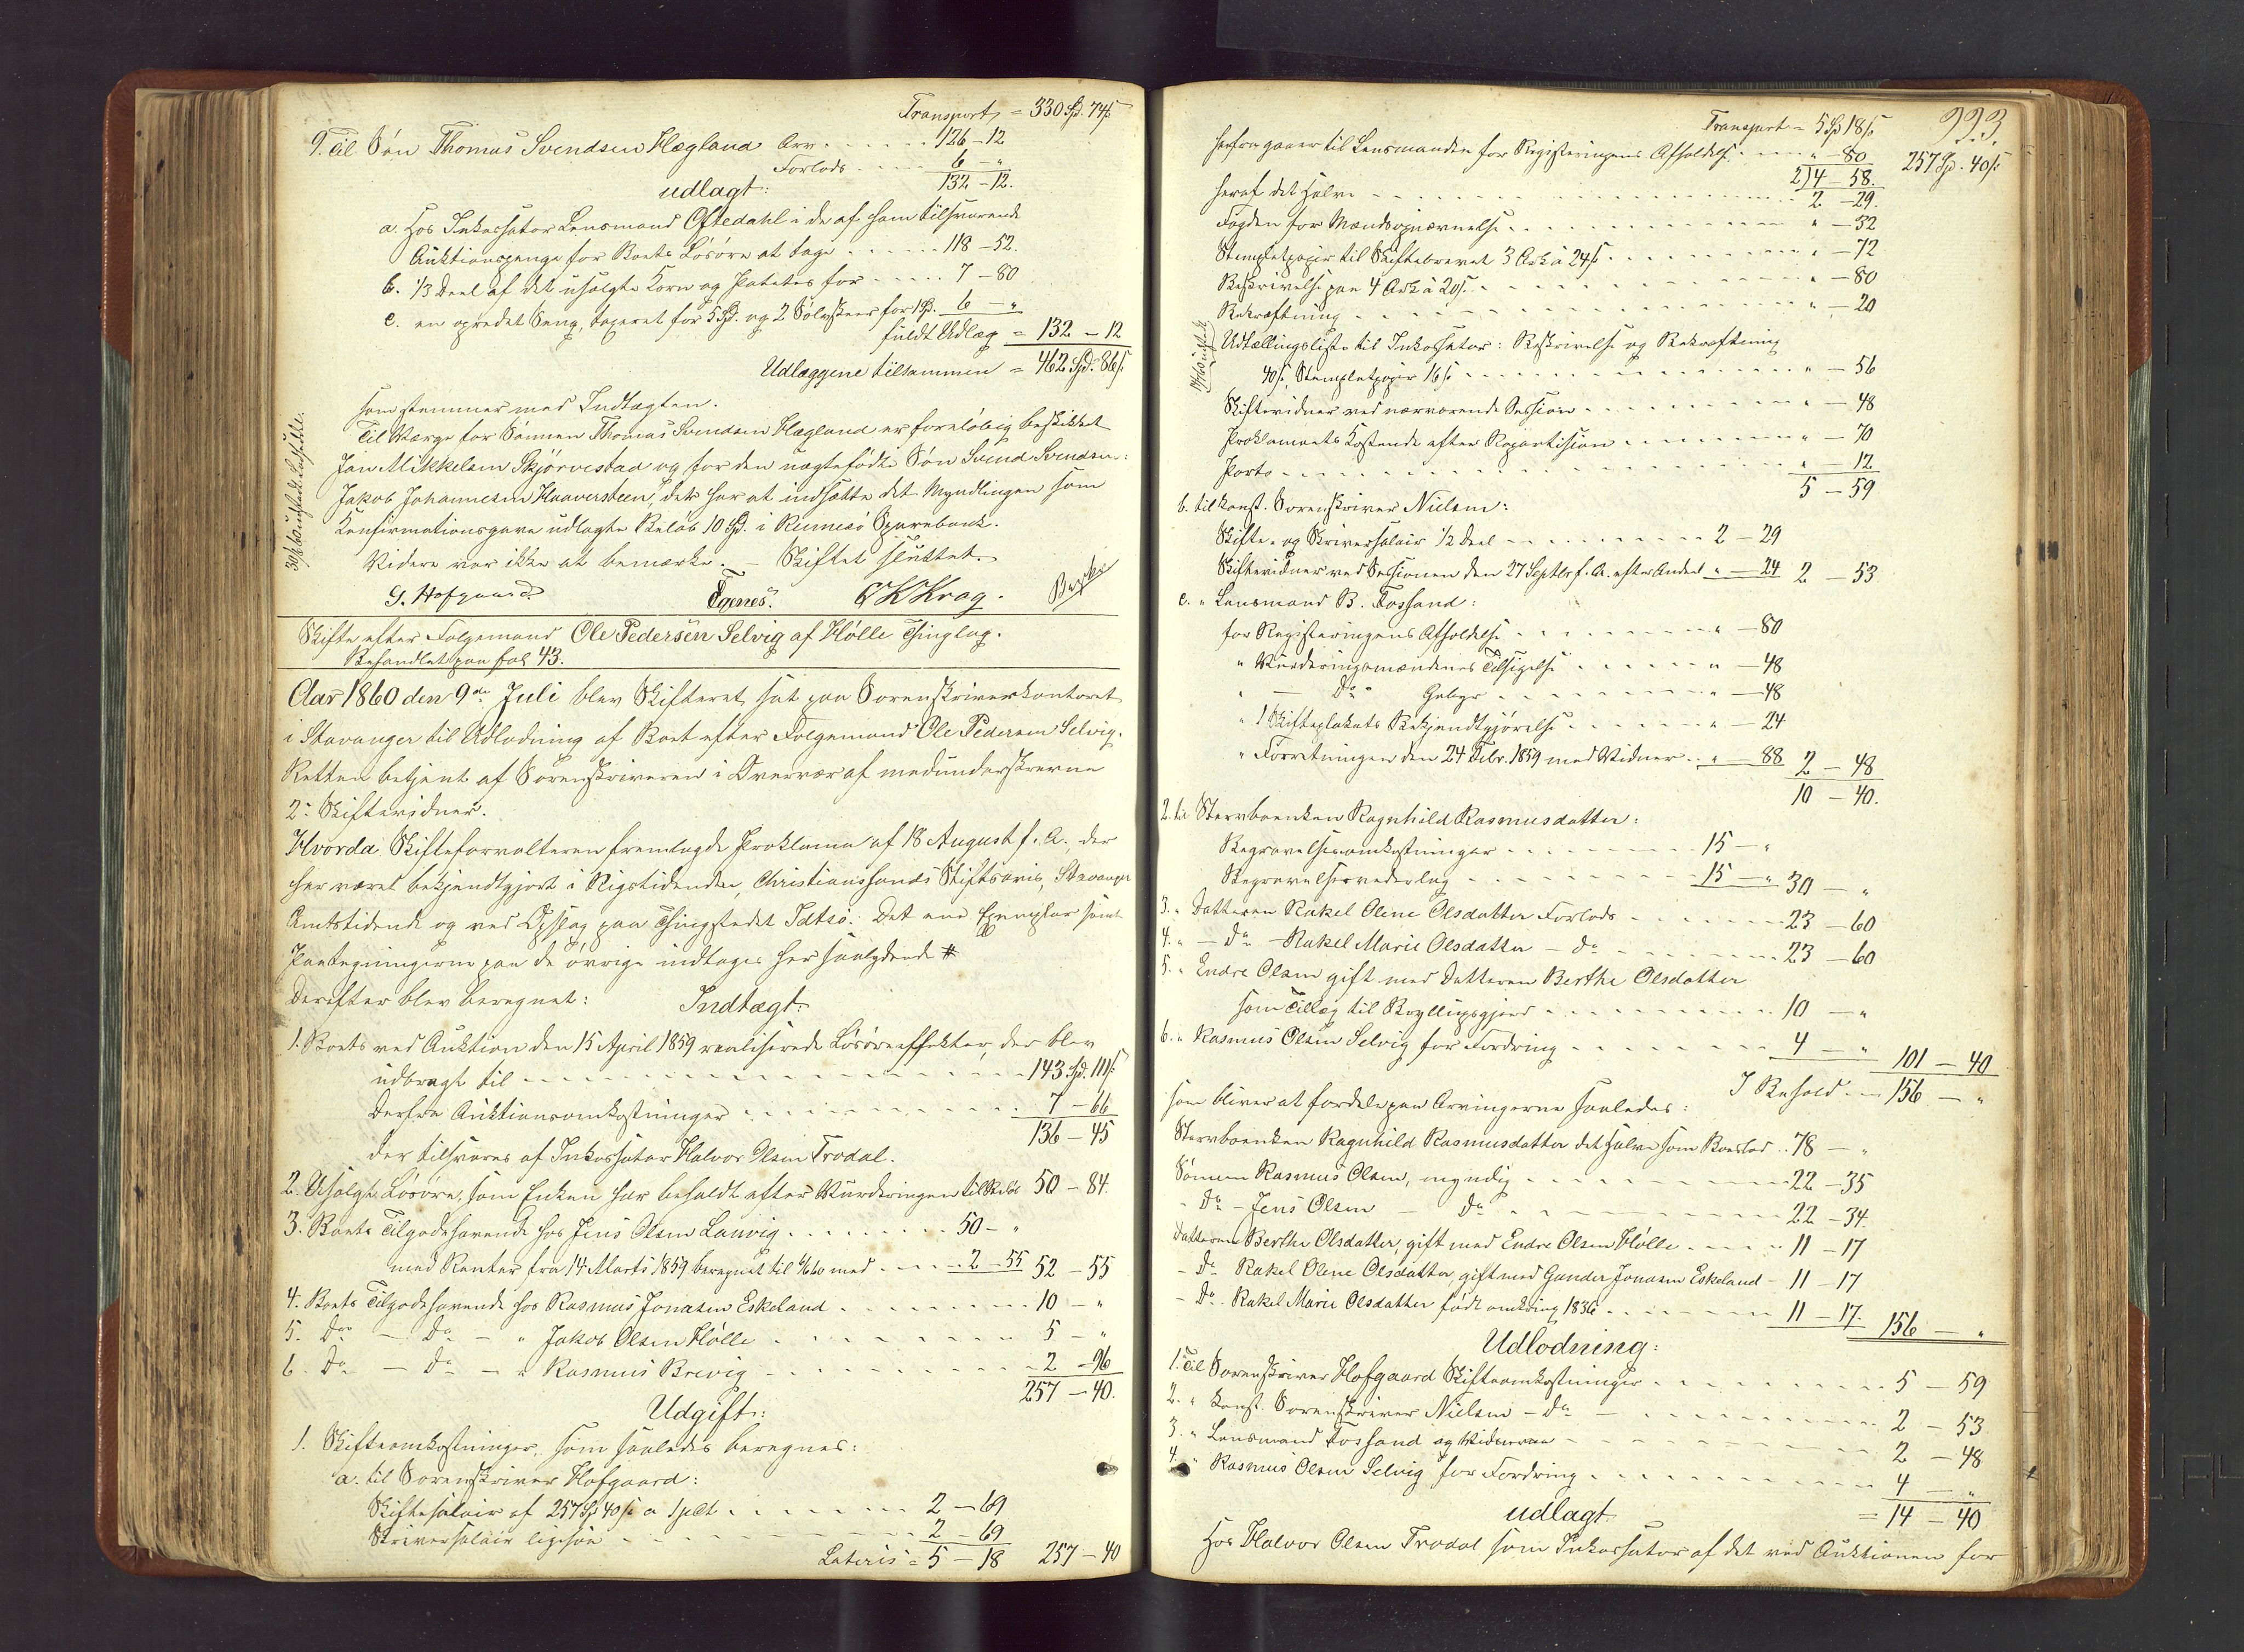 Transport = 330 Spd. 74 ß
9. Til Søn Thomas Svendsen Hægland Arv . . . . . . 126 – 12
Forlods . . . . 6 – "
132 – 12.
udlagt:
a. Hos Inkassator Lensmand Oftedahl i de af ham tilsvarende
Auktionspenge for Boets Løsøre at tage . . . . . 118 – 52.
b. 1/3 Deel af det usolgte Korn og Poteter for . . . . . 7 – 80
c. en opredet Seng, taxeret for 5 Spd. og 2 Sølvskeer for 1 Spd. 6 – "
fuldt Udlæg = 132 – 12
Udlæggene tilsammen = 462 Spd. 86 ß
som stemmer med Indtægten.
Til Værge for Sønnen Thomas Svendsen Hægland er foreløbig beskikket
Jon Mikkelsen Skjørvestad og for den uægtefødte Søn Svend Svendsen:
Jakob Johannesen Haaversteen, der har at indsætte det Myndlingen som
Konfirmationsgave udlagte Beløb 10 Spd. i Rennesø Sparebank.
Videre var ikke at bemærke. – Skiftet sluttet.
G. Hofgaard
Egenes.
C K Krag.
Skifte efter Folgemand Ole Pedersen Selvig af Hølle Thinglag.
Behandlet paa fol 43.
Aar 1860 den 9de Juli blev Skifteret sat paa Sorenskriverkontoret
i Stavanger til Udlodning af Boet efter Folgemand Ole Pedersen Selvig.
Retten betjent af Sorenskriveren i Overvær af medunderskrevne
2de Skiftevidner.
Hvorda Skifteforvalteren fremlagde Proklama af 18 August f. A., der
har været bekjendtgjort i Rigstidenden, Christianssands Stiftsavis, Stavanger
Amtstidende og ved Opslag paa Thingstedet Idtsø. Det ene Exemplar samt
Paategningerne paa de øvrige indtages her saalydende #
Derefter blev beregnet:
Indtægt:
1. Boets ved Auktion den 15 April 1859 realiserede Løsøreeffekter, der blev
udbragt til . . . . . 143 Spd. 111 ß
Derfra Auktionsomkostninger . . . . . 7 – 66
136 – 45
der tilsvares af Inkassator Halvor Olsen Frodal.
2. Usolgt Løsøre, som Enken har beholdt efter Vurderingen til Beløb 50 – 84.
3. Boets Tilgodehavende hos Jens Olsen Lauvig . . . . . 50 – "
med Renter fra 14 Marts 1859 beregnet til med . . . . 2 – 55 52 – 55
4. Boets Tilgodehavende hos Rasmus Jonasen Eskeland . . . . . 10 – "
5. Do – Do – " Jakob Olsen Hølle . . . . . 5 – "
6. Do – Do – " Rasmus Brevig . . . . . 2 – 96
257 – 40.
Udgift:
1. Skifteomkostninger, som saaledes beregnes:
a. til Sorenskriver Hofgaard:
Skiftesalair af 257 Spd 40 ß a 1 pCt . . . . . 2 – 69
Skriversalair ligesaa . . . . . 2 – 69
Lateris = 5 – 18 257 – 40
Transport = 5 Spd 18 ß
herfra gaaer til Lensmanden for Registreringens Afholdelse . . . . " – 80 257 Spd. 40 ß
2) 4 – 58.
heraf det Halve . . . . . 2 – 29.
Fogden for Mændsopnævnelse . . . . . " – 32
Stemplet papir til Skiftebrevet 3 Ark a 24 ß . . . . . " – 72
Beskrivelse paa 4 Ark a 20 ß . . . . . " – 80
Bekræftning . . . . . " – 20
Udtællingsliste til Inkassator: Beskrivelse og Bekræftning
40 ß, Stempletpapir 16 ß . . . . . " – 56
Skiftevidner ved nærværende Session . . . . . " – 48
Proklamaets Kostende efter Repartition . . . . . " – 70
Porto . . . . . " – 12
5 – 59
b. til konst. Sorenskriver Nielsen:
Skifte- og Skriversalair 1/2 Deel . . . . . 2 – 29
Skiftevidner ved Sessionen den 27 Septbr f. A. efter Andeel " – 24 2 – 53
c. " Lensmand B. Fossand:
for Registreringens Afholdelse . . . . . " – 80
" Vurderingsmændenes Tilsigelse . . . . . " – 48
" – Do " Gebyr . . . . . " – 48
" 1 Skifteplakats Bekjendtgjørelse . . . . . " – 24
" Forretningen den 24 Febr. 1859 med Vidner . . " – 88 2 – 48
10 – 40.
2. til Stervboenken Ragnhild Rasmusdatter:
Begravelsesomkostninger . . . . . 15 – "
Begravelsesvederlag . . . . . 15 – " 30 – "
3. " Datteren Rakel Oline Olsdatter Forlods . . . . . 23 – 60
4. " – Do – Rakel Marie Olsdatter – Do . . . . . 23 – 60
5. " Endre Olsen gift med Datteren Berthe Olsdatter
som Tillæg til Bryllupsgjerd . . . . . 10 – "
6. " Rasmus Olsen Selvig for Fordring . . . . . 4 – " 101 – 40
I Behold . . . 156 – "
som bliver at fordele paa Arvingerne saaledes:
Stervboenken Ragnhild Rasmusdatter det Halve som Boeslod . . 78 – "
Sønnen Rasmus Olsen, myndig . . . . . 22 – 35
– Do – Jens Olsen – Do . . . . . 22 – 34.
Datteren Berthe Olsdatter, gift med Endre Olsen Hølle . . . . 11 – 17
– Do Rakel Oline Olsdatter, gift med Gunder Jonasen Eskeland – 11 – 17
– Do. Rakel Marie Olsdatter født omkring 1836 . . . . . 11 – 17. 156 – "
Udlodning:
1. Til Sorenskriver Hofgaard Skifteomkostninger . . . . . 5 – 59
2. " Konst. Sorenskriver Nielsen – Do – . . . . . 2 – 53
3. " Lensmand Fossand og Vidnerne – . . . . . 2 – 48
4. " Rasmus Olsen Selvig for Fordring . . . . . 4 – "
= 14 – 40
udlagt
Hos Halvor Olsen Frodal som Inkassator af det ved Auktionen for